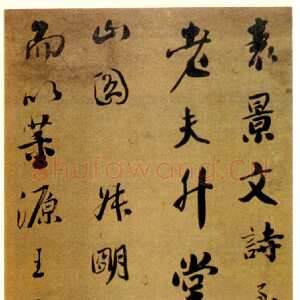 袁景文詩
老夫升堂
山圖 牀朙
而以董源王
shufawang.cn